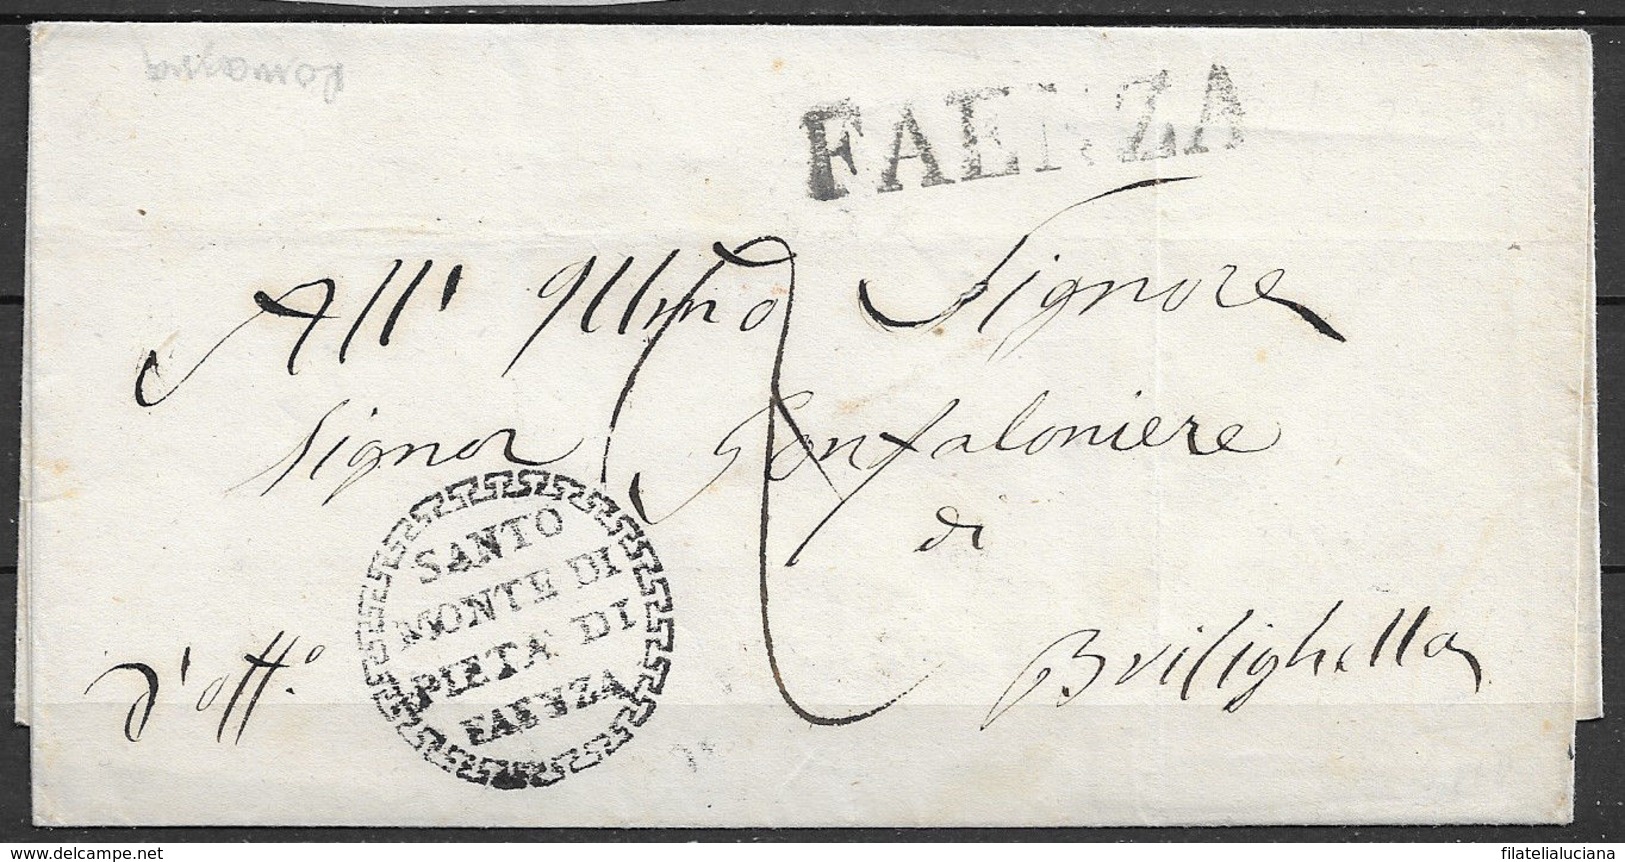 Romagna
FAENZA
All' Illmo Signore
Signor Gonfaloniere
di
Brisighella
d'off.º
SANTO
MONTE DI
PIETA' DI
FAENZA
delcampe.net
filatelialuciana